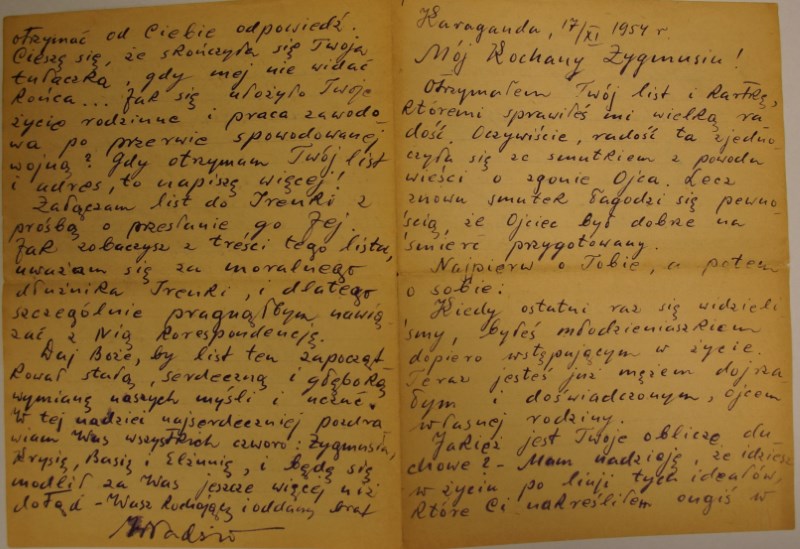 Karaganda, 17/XI 1954 r.
Mój Kochany Zygmusiu!
Otrzymałem Twój list i kartkę,
któremi sprawiłeś mi wielką ra
dość. Oczywiście, radość ta zjedno-
czyła się ze smutkiem z powodu
wieści o zgonie Ojca. Lecz
znowu smutek łagodzi się pewno-
ścią, że Ojciec był dobrze na
śmierć przygotowany.
Najpierw o Tobie, a potem
o sobie:
Kiedy ostatni raz się widzieli
śmy, byłeś młodzieniaszkiem
dopiero wstępującym w życie.
Teraz jesteś już mężem dojrza
łym i doświadczonym, ojcem
własnej rodziny.
Jakież jest Twoje oblicze du-
chowe? - Mam nadzieję, że idziesz
w życiu po linji tych ideałów,
które Ci nakreśliłem ongiś w
otrzymać od Ciebie odpowiedź.
Cieszę się, że skończyła się Twoja
tułaczka, gdy mej nie widać
końca... Jak się ułożyło Twoje
życie rodzinne i praca zawodo-
wa po przerwie spowodowanej
wojną? Gdy otrzymam Twój list
i adres, to napiszę więcej!
Załączam list do Irenki z
prośbą o przesłanie go Jej.
Jak zobaczysz z treści tego listu,
uważam się za moralnego
dłużnika Irenki, i dlatego
szczególnie pragnąłbym nawią
zać z Nią korespondencję.
Daj Boże, by list ten zapocząt
kował stałą, serdeczną i głęboką
wymianę naszych myśli i uczuć.
W tej nadziei najserdeczniej pozdra
wiam Was wszystkich czworo: Zygmusia,
Krysię, Basię i Elżunię, i będę się
modlił za Was jeszcze więcej niż
dotąd - Wasz kochający i oddany brat